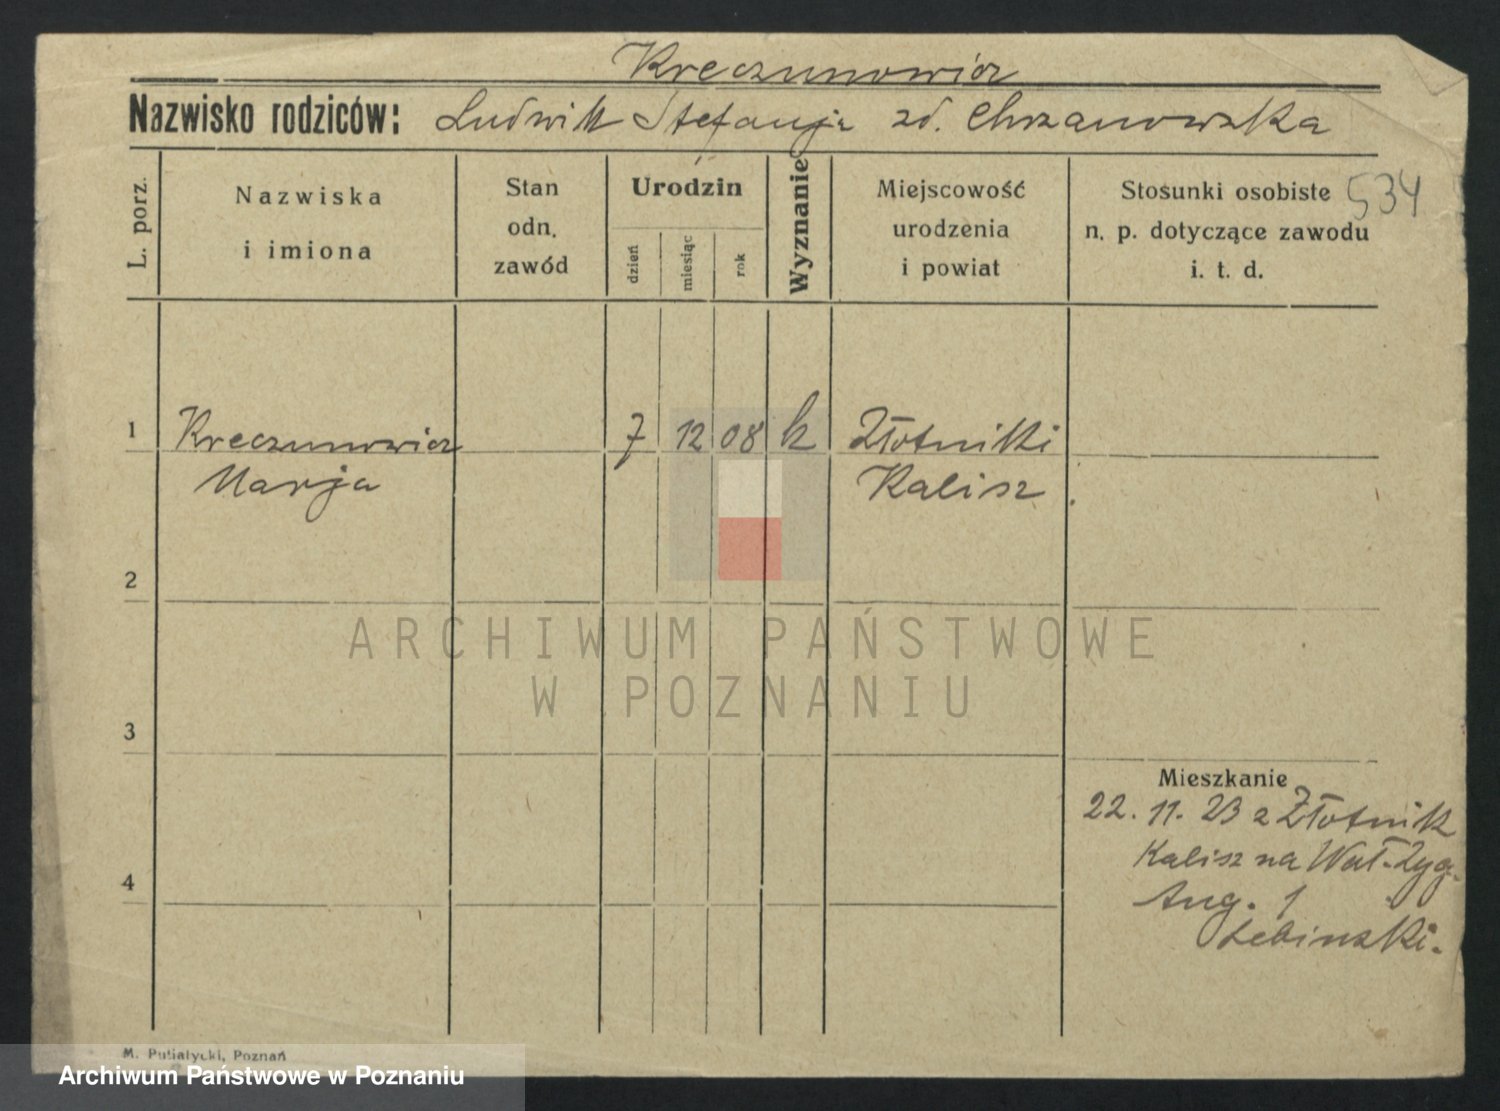 Kreczunowicz
Nazwisko rodziców: Ludwik Stefanja zd. Chrzanowska
L. porz.
Nazwiska
i imiona
Stan
odn.
zawód
Urodzin
dzień
miesiąc
rok
Wyznanie
Miejscowość
urodzenia
i powiat
Stosunki osobiste
n. p. dotyczące zawodu
i. t. d.
534
1 Kreczunowicz 7 12 08 k Złotniki
Marja Kalisz
2
ARCHIWUM PAŃSTWOWE
W POZNANIU
3
Mieszkanie
22. 11. 23 z Złotnik
Kalisz na Wał-Zyg.
4
Aug. 1
Łebinski.
M. Putiatycki, Poznań
Archiwum Państwowe w Poznaniu